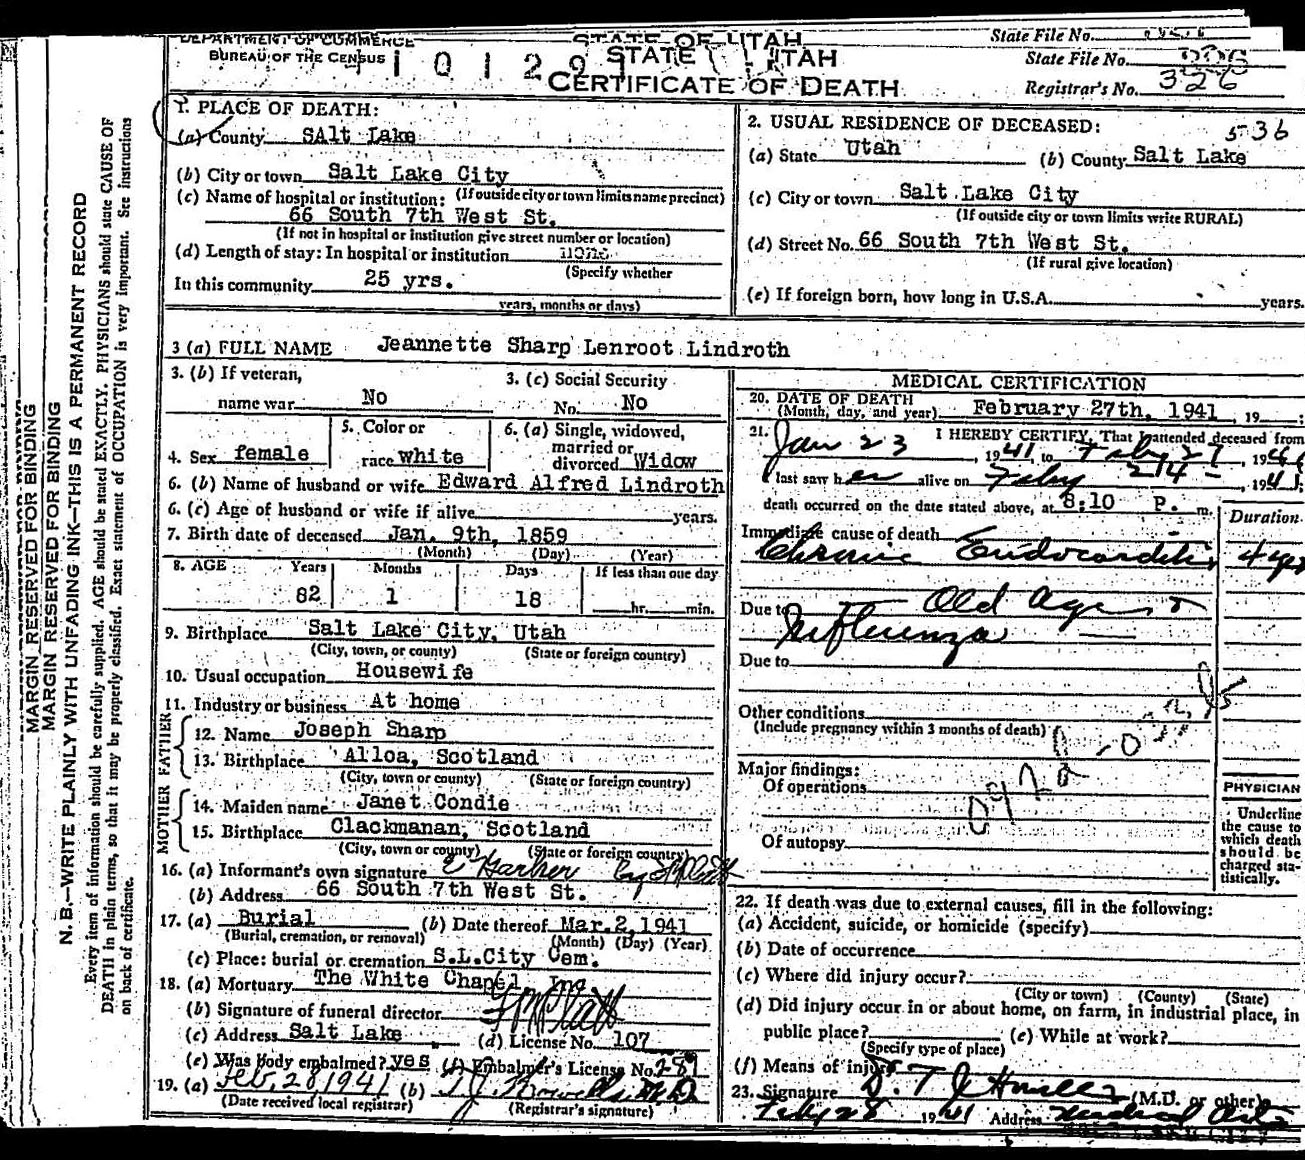 MARGIN RESERVED FOR BINDING
MARGIN RESERVED FOR BINDING
N. B.—WRITE PLAINLY WITH UNFADING INK—THIS IS A PERMANENT RECORD
Every item of information should be carefully supplied. AGE should be stated EXACTLY. PHYSICIANS should state CAUSE OF
DEATH in plain terms, so that it may be properly classified. Exact statement of OCCUPATION is very important. See instructions
on back of certificate.
DEPARTMENT OF COMMERCE
BUREAU OF THE CENSUS
STATE OF UTAH
STATE UTAH
CERTIFICATE OF DEATH
State File No.
State File No.
Registrar's No. 326
1. PLACE OF DEATH:
(a) County SAlt Lake
(b) City or town Salt Lake City
(If outside city or town limits name precinct)
(c) Name of hospital or institution:
66 South 7th West St.
(If not in hospital or institution give street number or location)
(d) Length of stay: In hospital or institution none
(Specify whether
In this community 25 yrs.
years, months or days)
2. USUAL RESIDENCE OF DECEASED: 536
(a) State Utah (b) County Salt Lake
(c) City or town Salt Lake City
(If outside city or town limits write RURAL)
(d) Street No. 66 South 7th West St.
(If rural give location)
(e) If foreign born, how long in U.S.A. years.
3 (a) FULL NAME Jeannette Sharp Lenroot Lindroth
3. (b) If veteran,
name war No
3. (c) Social Security
No. No
4. Sex female
5. Color or
race white
6. (a) Single, widowed,
married or
divorced Widow
6. (b) Name of husband or wife Edward Alfred Lindroth
6. (c) Age of husband or wife if alive years.
7. Birth date of deceased Jan. 9th, 1859
(Month) (Day) (Year)
8. AGE Years Months Days If less than one day
82 1 18 hr. min.
9. Birthplace Salt Lake City, Utah
(City, town, or county) (State or foreign country)
10. Usual occupation Housewife
11. Industry or business At home
FATHER
12. Name Joseph Sharp
13. Birthplace Alloa, Scotland
(City, town or county) (State or foreign country)
MOTHER
14. Maiden name Janet Condie
15. Birthplace Clackmanan, Scotland
(City, town or county) (State or foreign country)
16. (a) Informant's own signature
(b) Address 66 South 7th West St.
17. (a) Burial (b) Date thereof Mar.2,1941
(Burial, cremation, or removal) (Month) (Day) (Year)
(c) Place: burial or cremation S.L.City Cem.
18. (a) Mortuary The White Chapel Inc
(b) Signature of funeral director
(c) Address Salt Lake (d) License No. 107
(e) Was body embalmed? yes (f) Embalmer's License No.
19. (a) Feb. 28 1941 (b) M.D.
(Date received local registrar) (Registrar's signature)
MEDICAL CERTIFICATION
20. DATE OF DEATH
(Month, day, and year) February 27th, 1941, 19
21. I HEREBY CERTIFY, That I attended deceased from
Jan 23, 1941, to Feby 27, 194
I last saw her alive on Feby, 1941;
death occurred on the date stated above, at 8:10 P. m.
Duration
Immediate cause of death
Chronic Endocarditis 4 yrs
Due to Old age
Influenza
Due to
Other conditions
(Include pregnancy within 3 months of death)
Major findings:
Of operations
Of autopsy
PHYSICIAN
Underline
the cause to
which death
should be
charged sta-
tistically.
22. If death was due to external causes, fill in the following:
(a) Accident, suicide, or homicide (specify)
(b) Date of occurrence
(c) Where did injury occur?
(City or town) (County) (State)
(d) Did injury occur in or about home, on farm, in industrial place, in
public place? (e) While at work?
(Specify type of place)
(f) Means of injury
23. Signature (M.D. or other)
Feby 28 1941 Address Medical Arts